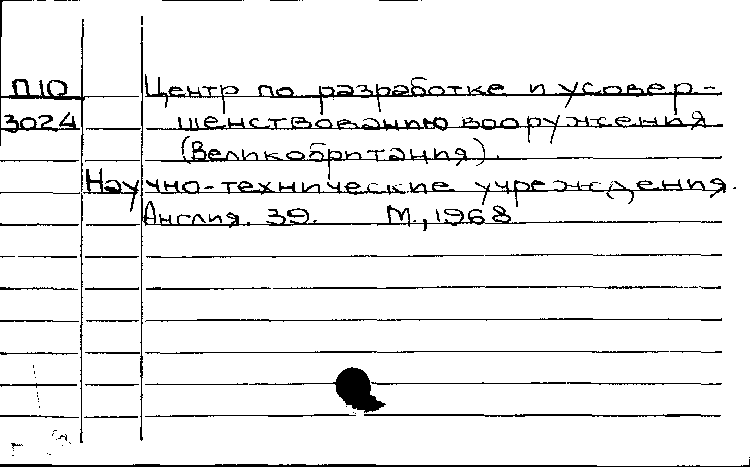 П10 Центр по разработке и усовер-
3024 шенствованию вооружения
(Великобритания).
Научно-технические учреждения.
Англия. 39. М., 1968